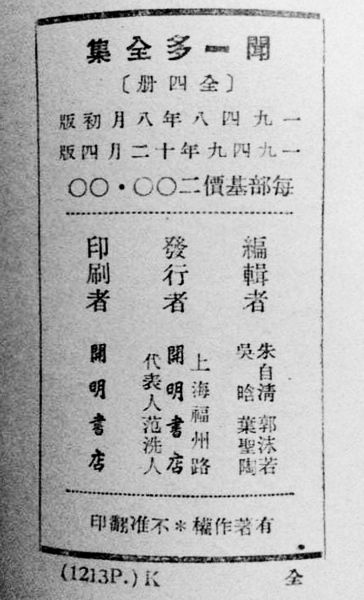 聞一多全集
〔全四册〕
一九四八年八月初版
一九四九年十二月四版
每部基價二〇〇・〇〇
編輯者
朱自清 郭沫若
吳晗 葉聖陶
發行者
上海福州路
開明書店
代表人范洗人
印刷者
開明書店
有著作權*不准翻印
(1213P.) K 全